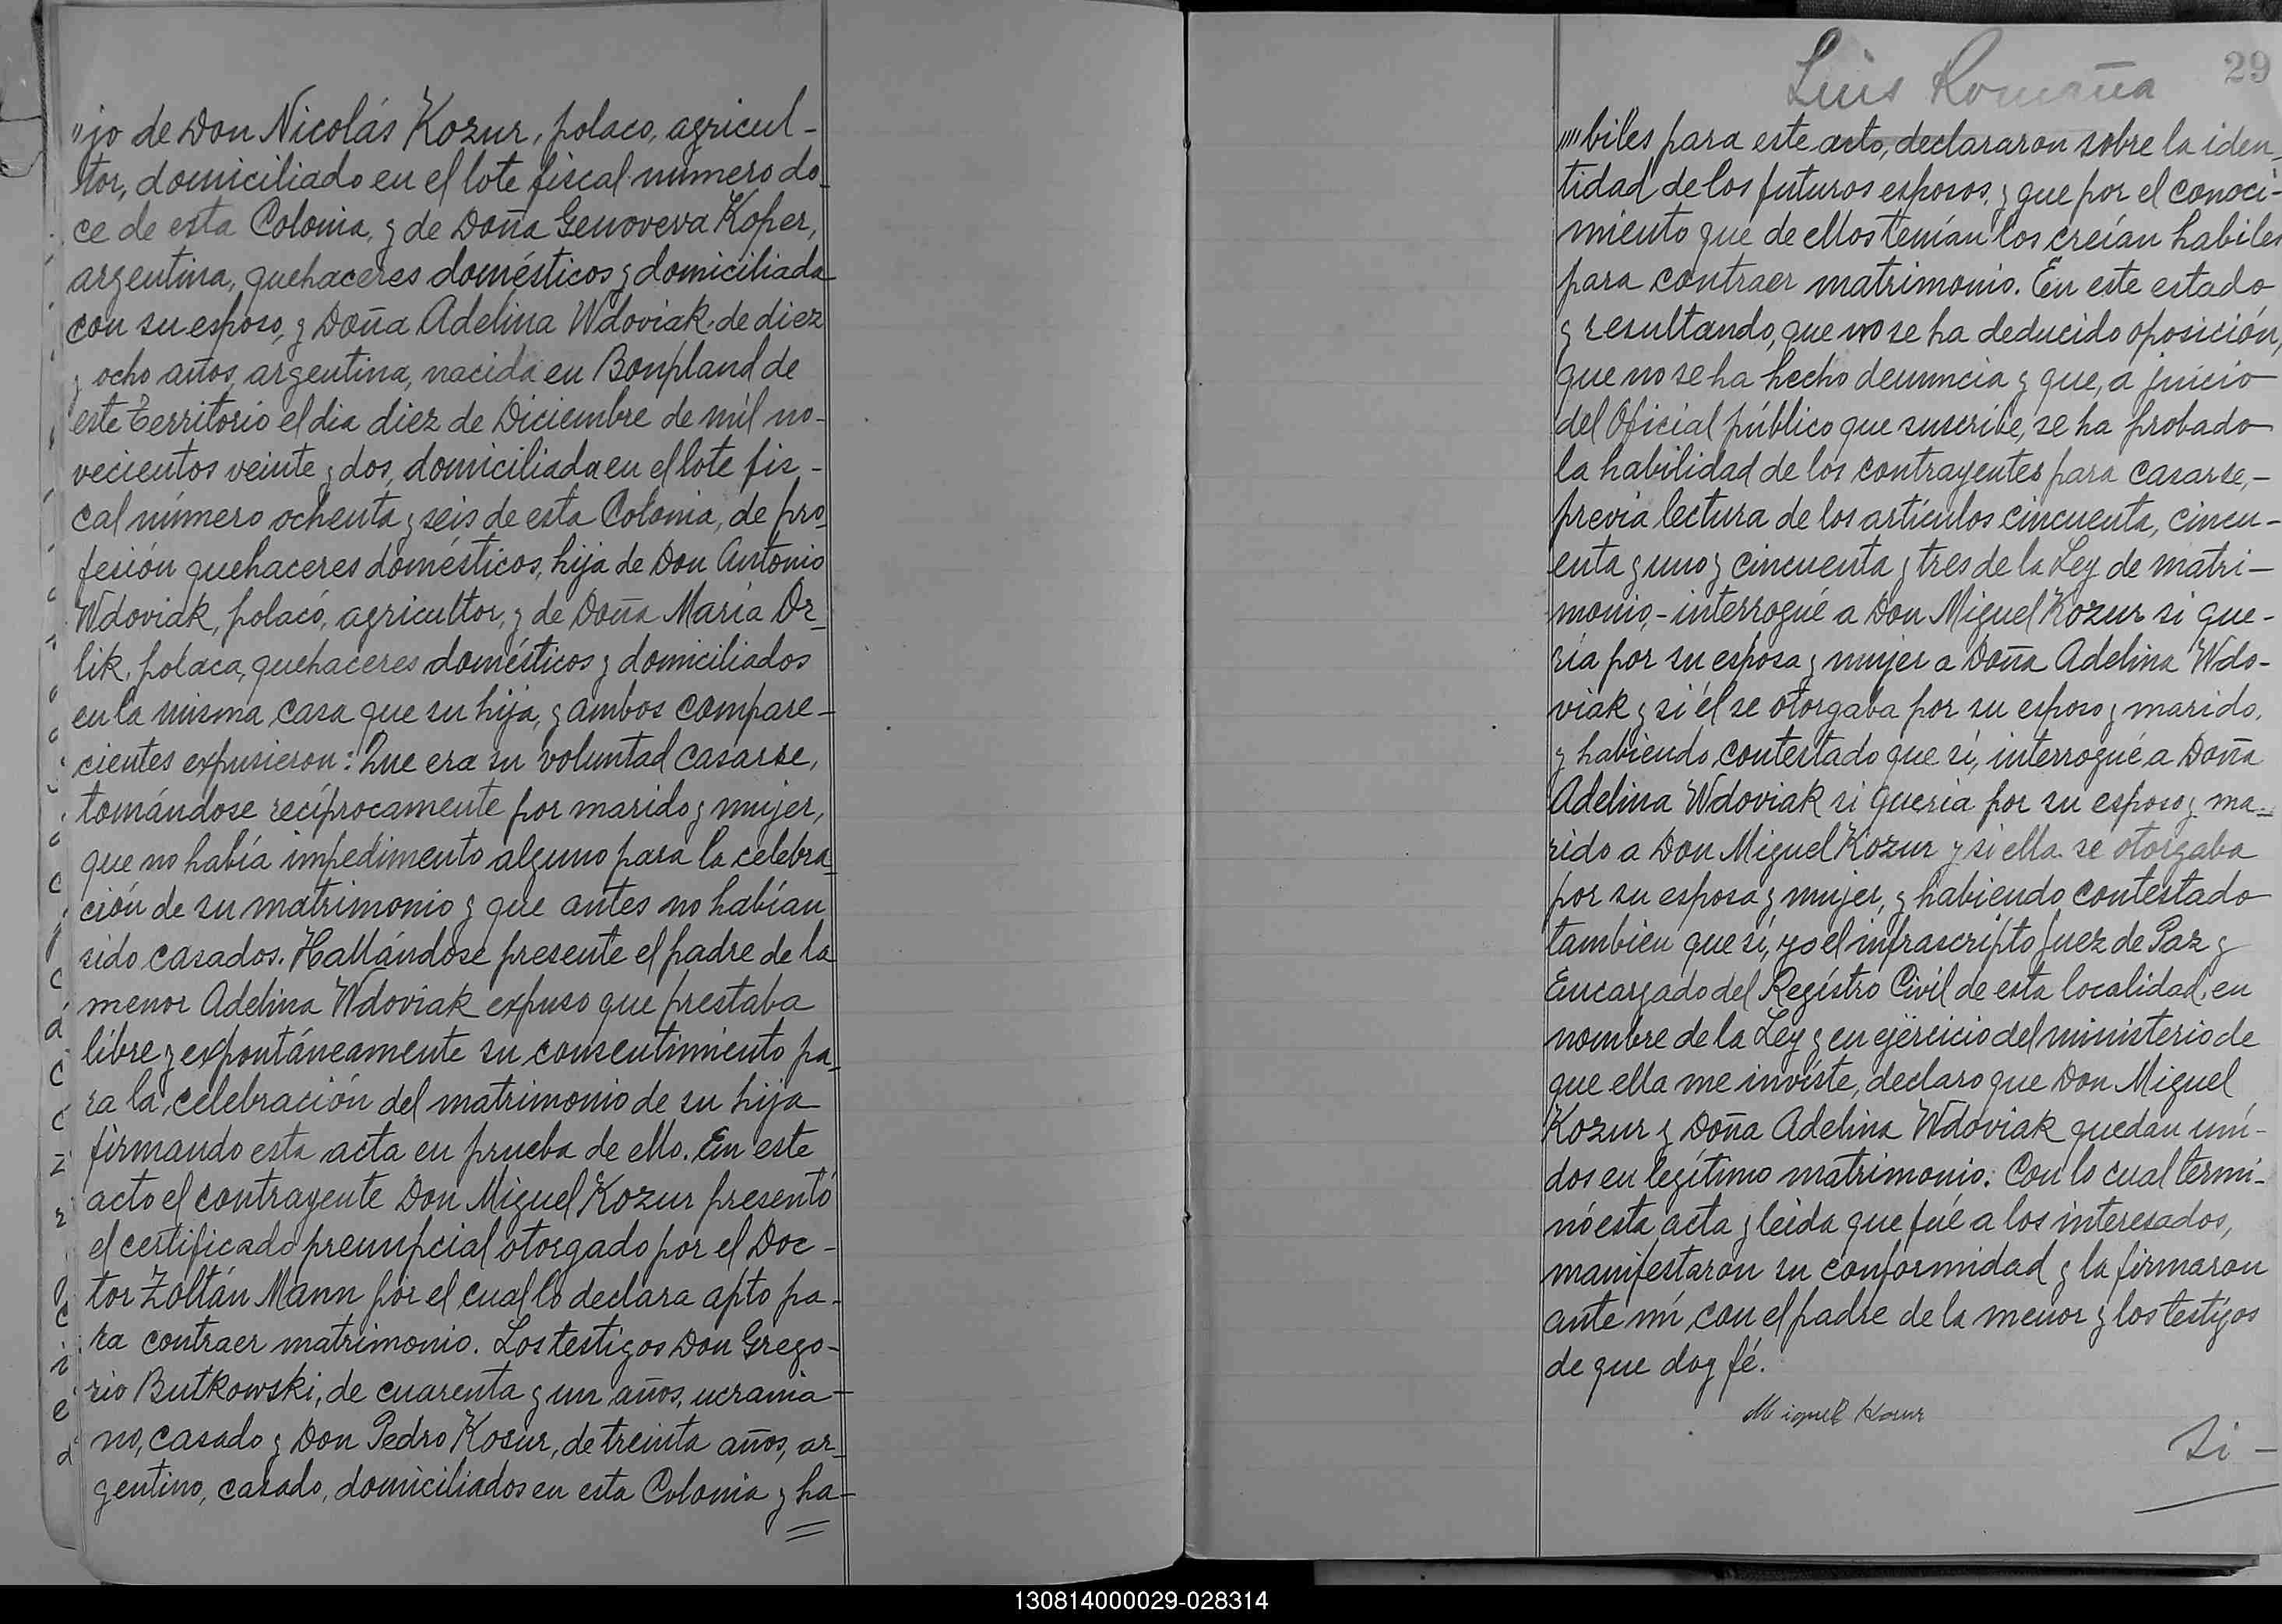 "jo de Don Nicolás Kozur, polaco, agricul-
tor, domiciliado en el lote fiscal número do-
ce de esta Colonia, y de Doña Genoveva Koper,
argentina, quehaceres domésticos y domiciliada
con su esposo, y Doña Adelina Wdoviak, de diez
y ocho años, argentina, nacida en Bonpland de
este Territorio el dia diez de Diciembre de mil no-
vecientos veinte y dos, domiciliada en el lote fis-
cal número ochenta y seis de esta Colonia, de pro-
fesión quehaceres domésticos, hija de Don Antonio
Wdoviak, polaco, agricultor, y de Doña María Or-
lik, polaca, quehaceres domésticos y domiciliados
en la misma casa que su hija, y ambos compare-
cientes expusieron: Que era su voluntad casarse,
tomándose recíprocamente por marido y mujer,
que no había impedimento alguno para la celebra-
ción de su matrimonio y que antes no habían
sido casados. Hallándose presente el padre de la
menor Adelina Wdoviak expuso que prestaba
libre y expontáneamente su consentimiento pa-
ra la celebración del matrimonio de su hija
firmando esta acta en prueba de ello. En este
acto el contrayente Don Miguel Kozur presentó
el certificado prenupcial otorgado por el Doc-
tor Zoltán Mann por el cual lo declara apto pa-
ra contraer matrimonio. Los testigos Don Grego-
rio Butkowski, de cuarenta y un años, ucrania-
no, casado y Don Pedro Kosur, de treinta años, ar-
gentino, casado, domiciliados en esta Colonia y ha-
Luis Romaña
29
""biles para este acto, declararon sobre la iden-
tidad de los futuros esposos, y que por el conoci-
miento que de ellos tenían los creían habiles
para contraer matrimonio. En este estado
y resultando, que no se ha deducido oposición,
que no se ha hecho denuncia y que, a juicio
del Oficial público que suscribe, se ha probado
la habilidad de los contrayentes para casarse,-
previa lectura de los artículos cincuenta, cincu-
enta y uno y cincuenta y tres de la Ley de matri-
monio,- interrogué a Don Miguel Kozur si que-
ría por su esposa y mujer a Doña Adelina Wdo-
viak y si él se otorgaba por su esposo y marido,
y habiendo contestado que sí, interrogué a Doña
Adelina Wdoviak si quería por su esposo y ma-
rido a Don Miguel Kozur y si ella se otorgaba
por su esposa y mujer, y habiendo contestado
tambien que sí, yo el infrascripto Juez de Paz y
Encargado del Regístro Civil de esta localidad, en
nombre de la Ley y en ejercicio del ministerio de
que ella me invíste, declaro que Don Miguel
Kozur y Doña Adelina Wdoviak quedan uni-
dos en legítimo matrimonio. Con lo cual termi-
nó esta acta y leída que fué a los interesados,
manifestaron su conformidad y la firmaron
ante mí con el padre de la menor y los testigos
de que doy fé.
Miguel Kozur
Si -
130814000029-028314